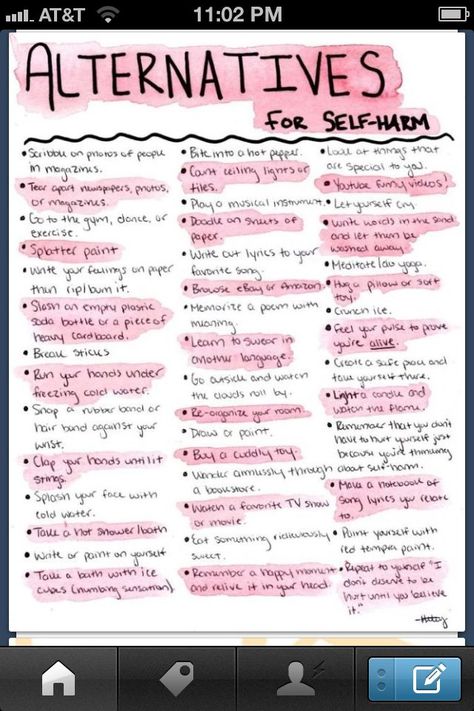 AT&T
11:02 PM
ALTERNATIVES
FOR SELF-HARM
• Scribble on photos of people
in magazines.
• Tear apart newspapers, photos,
or magazines.
• Go to the gym, dance, or
exercise.
• Splatter paint
• Write your feelings on paper
then rip/burn it.
• Slash an empty plastic
soda bottle or a piece of
heavy cardboard.
• Break sticks
• Run your hands under
freezing cold water.
• Snap a rubber band or
hair band against your
wrist.
• Clap your hands until it
stings.
• Splash your face with
cold water.
• Take a hot shower/bath
• Write or paint on yourself
• Take a bath with ice
cubes (numbing sensation)
• Bite into a hot pepper.
• Count ceiling lights or
tiles.
• Play a musical instrument.
• Doodle on sheets of
paper.
• Write out lyrics to your
favorite song.
• Browse eBay or Amazon.
• Memorize a poem with
meaning.
• Learn to swear in
another language.
• Go outside and watch
the clouds roll by.
• Re-organize your room.
• Draw or paint.
• Buy a cuddly toy.
• Wander aimlessly through
a bookstore.
• Watch a favorite TV show
or movie.
• Eat something ridiculously
sweet.
• Remember a happy moment
and relive it in your head.
• Look at things that
are special to you.
• Youtube funny videos!
• Let yourself cry.
• Write words in the sand
and let them be
washed away.
• Meditate/do yoga.
• Hug a pillow or soft
toy.
• Crunch ice.
• Feel your pulse to prove
you're alive.
• Create a safe place and
take yourself there.
• Light a candle and
watch the flame.
• Remember that you don't
have to hurt yourself just
because you're thinking
about self-harm.
• Make a notebook of
song lyrics you relate
to.
• Paint yourself with
red tempra paint.
• Repeat to yourself "I
don't deserve to be
hurt until you believe
it."